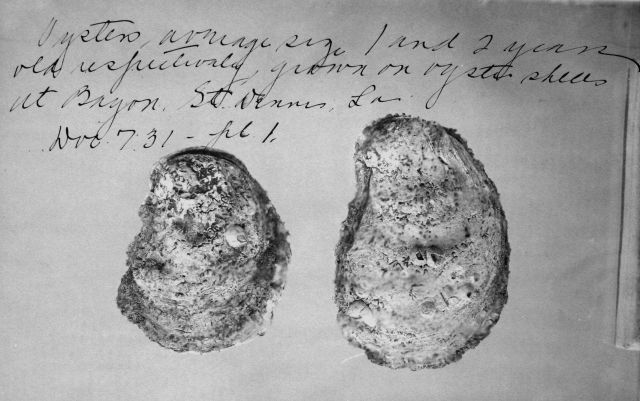 Oysters, average size, 1 and 2 years
old respectively, grown on oyster shells
at Bayou St. Dennis, La.
Doc. 731 - pl 1.